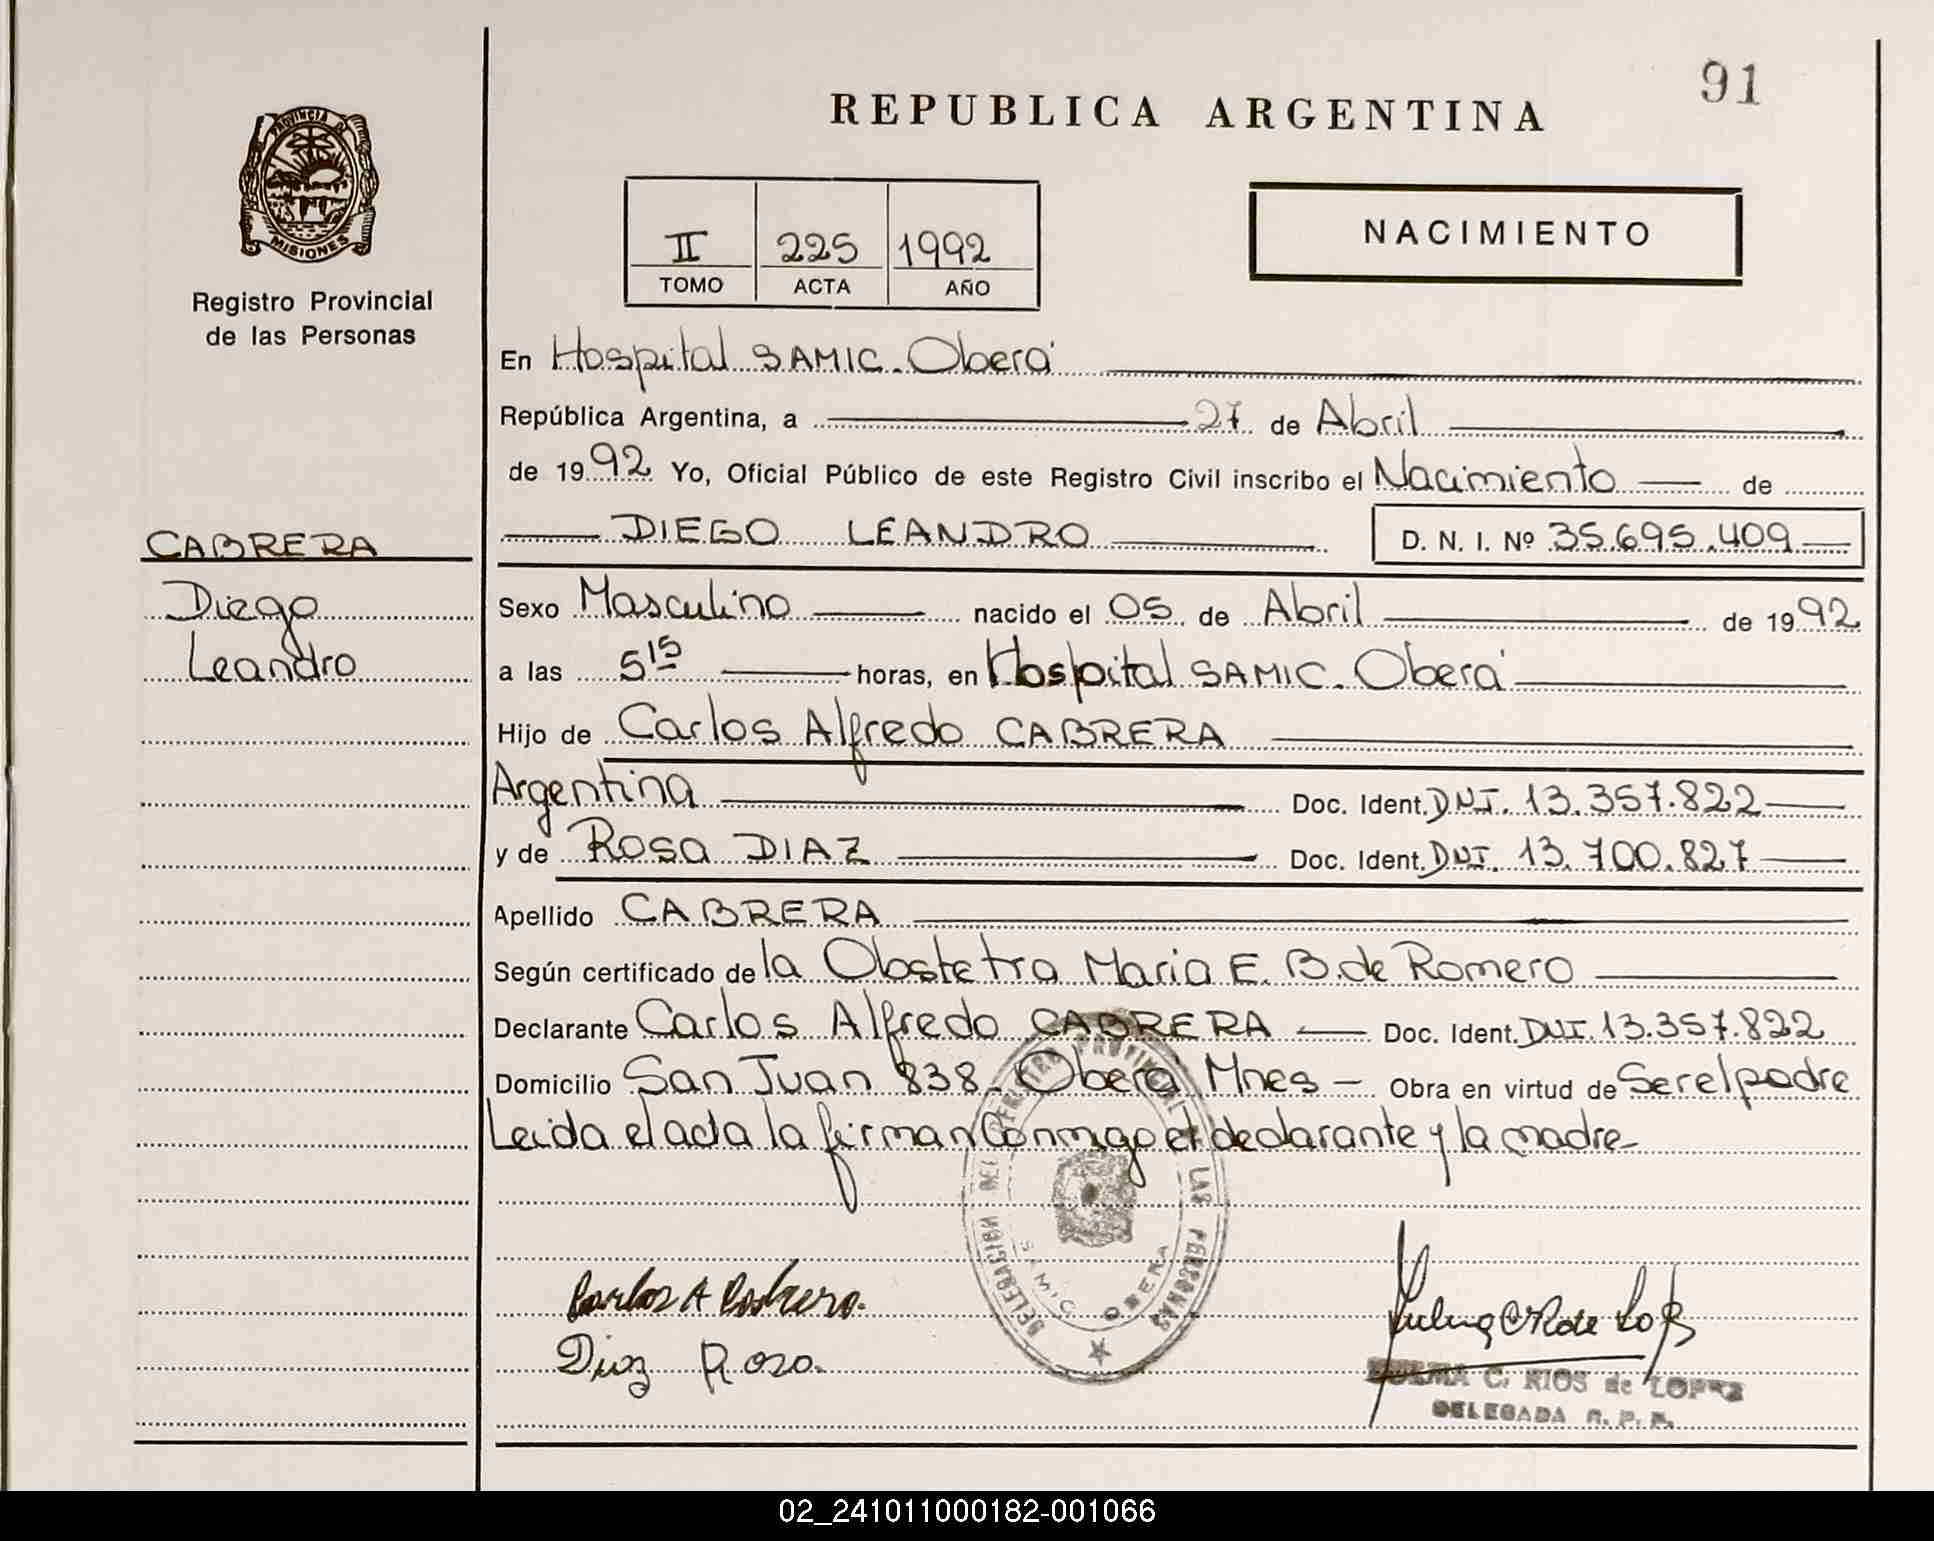 91
REPUBLICA ARGENTINA
PROVINCIA D
MISIONES
Registro Provincial
de las Personas
II 225 1992
TOMO ACTA AÑO
NACIMIENTO
En Hospital SAMIC. Oberá
República Argentina, a 27 de Abril
de 1992 Yo, Oficial Público de este Registro Civil inscribo el Nacimiento de
DIEGO LEANDRO D. N. I. Nº 35.695.409
CABRERA
Diego
Leandro
Sexo Masculino nacido el 05 de Abril de 1992
a las 5 15 horas, en Hospital SAMIC. Oberá
Hijo de Carlos Alfredo CABRERA
Argentina Doc. Ident. DNI. 13.357.822
y de Rosa DIAZ Doc. Ident. DNI. 13.700.827
Apellido CABRERA
Según certificado de la Obstetra Maria E. B. de Romero
Declarante Carlos Alfredo CABRERA Doc. Ident. DNI. 13.357.822
Domicilio San Juan 838. Oberá Mnes - Obra en virtud de Ser el padre
Leida el acta la firman Conmigo el declarante y la madre
DELEGACION DEL REGISTRO PROVINCIAL LAS PERSONAS
SAMIC OBERA
Carlos A Cabrera.
Diaz Rosa.
C. RIOS de LOPEZ
DELEGADA R. P. P.
02_241011000182-001066